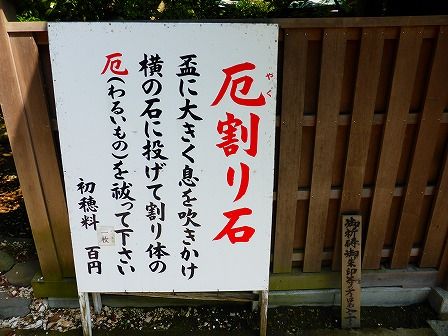 厄割り石
やく
盃に大きく息を吹きかけ
横の石に投げて割り体の
厄(わるいもの)を祓って下さい
初穂料 一枚 百円
御祈祷御朱印等